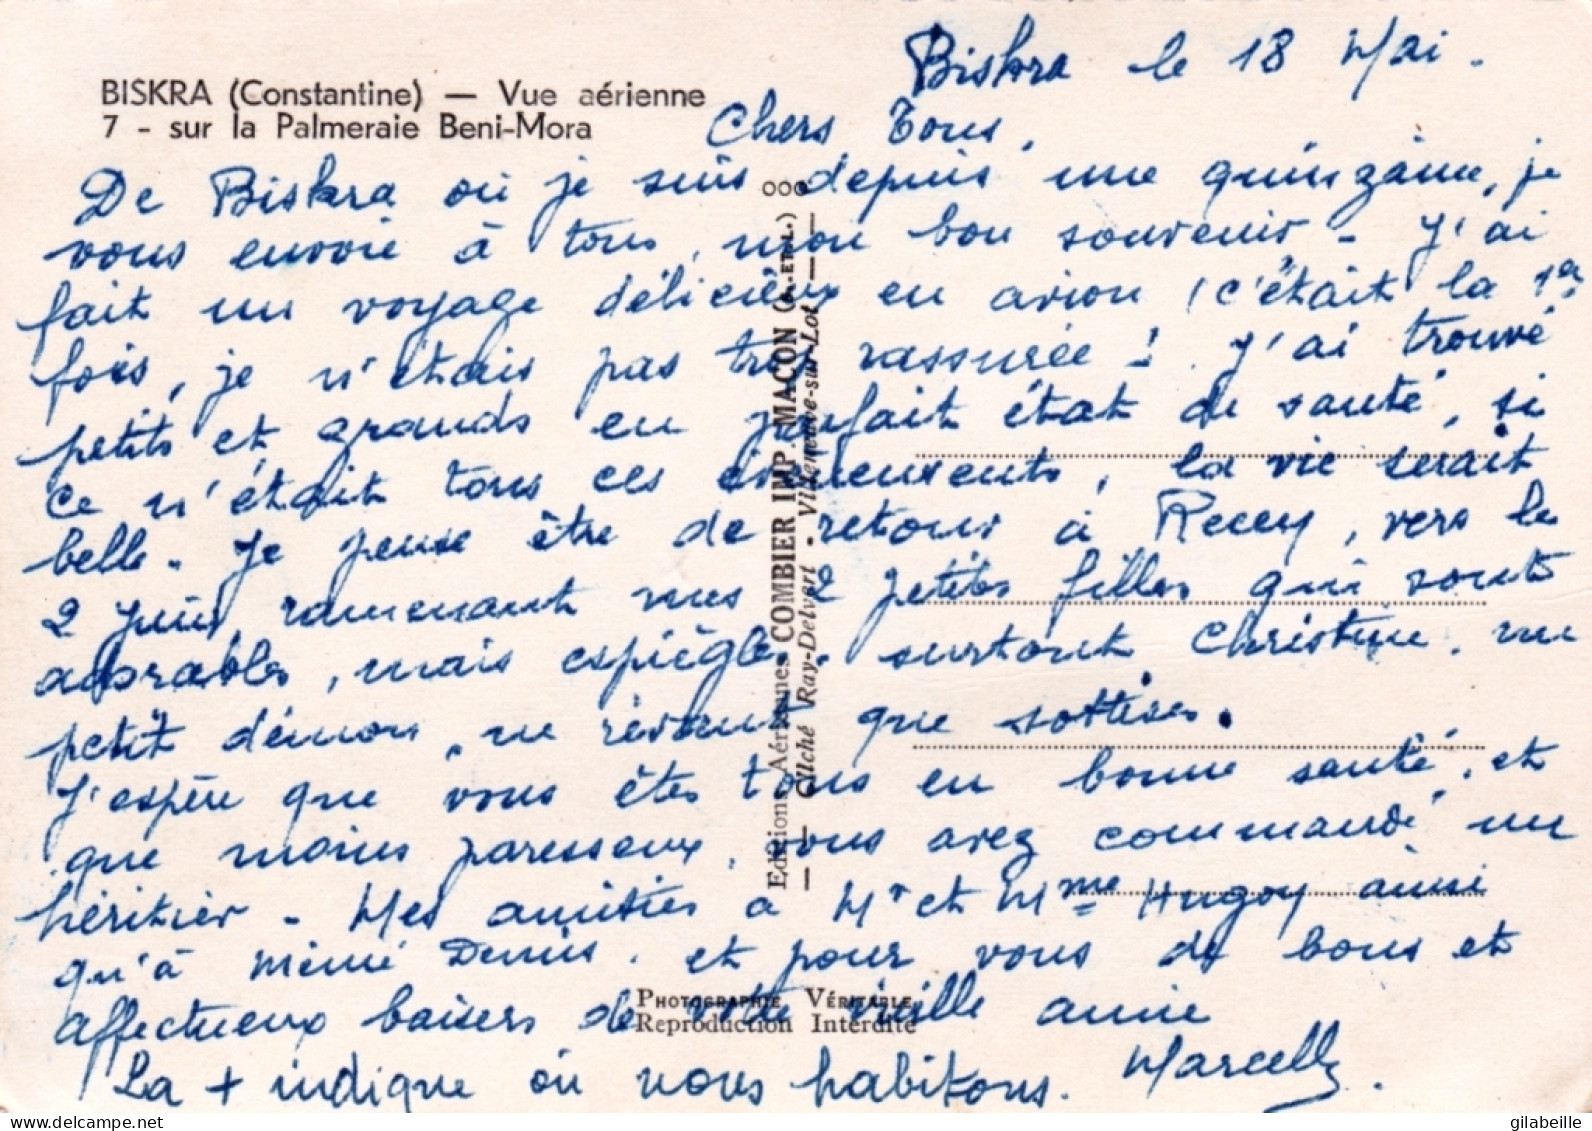 BISKRA (Constantine) — Vue aérienne
7 - sur la Palmeraie Beni-Mora
Biskra le 18 Mai.
Chers Tous,
De Biskra où je suis depuis une quinzaine, je
vous envoie à tous, mon bon souvenir - J'ai
fait un voyage délicieux en avion (c'était la 1ère
fois, je n'étais pas très rassurée ! J'ai trouvé
petits et grands en parfait état de santé, si
ce n'était tous ces évènements, la vie serait
belle. Je pense être de retour à Recey, vers le
2 Juin, ramenant mes 2 petites filles qui sont
adorables, mais espiègles, surtout Christine, un
petit démon, ne rêvant que sottises.
J'espère que vous êtes tous en bonne santé, et
que moins paresseux, vous avez commandé un
héritier - Mes amitiés à Mr et Mme Hugoy ainsi
qu'à mémé Denis, et pour vous de bons et
affectueux baisers de votre vieille amie
Marcelle.
La + indique où nous habitons.
Editions Aériennes COMBIER IMP. MACON (S.-ET-L.) ooo
— Cliché Ray-Delvert - Villeneuve-sur-Lot —
PHOTOGRAPHIE VÉRITABLE
Reproduction Interdite
gilabeille